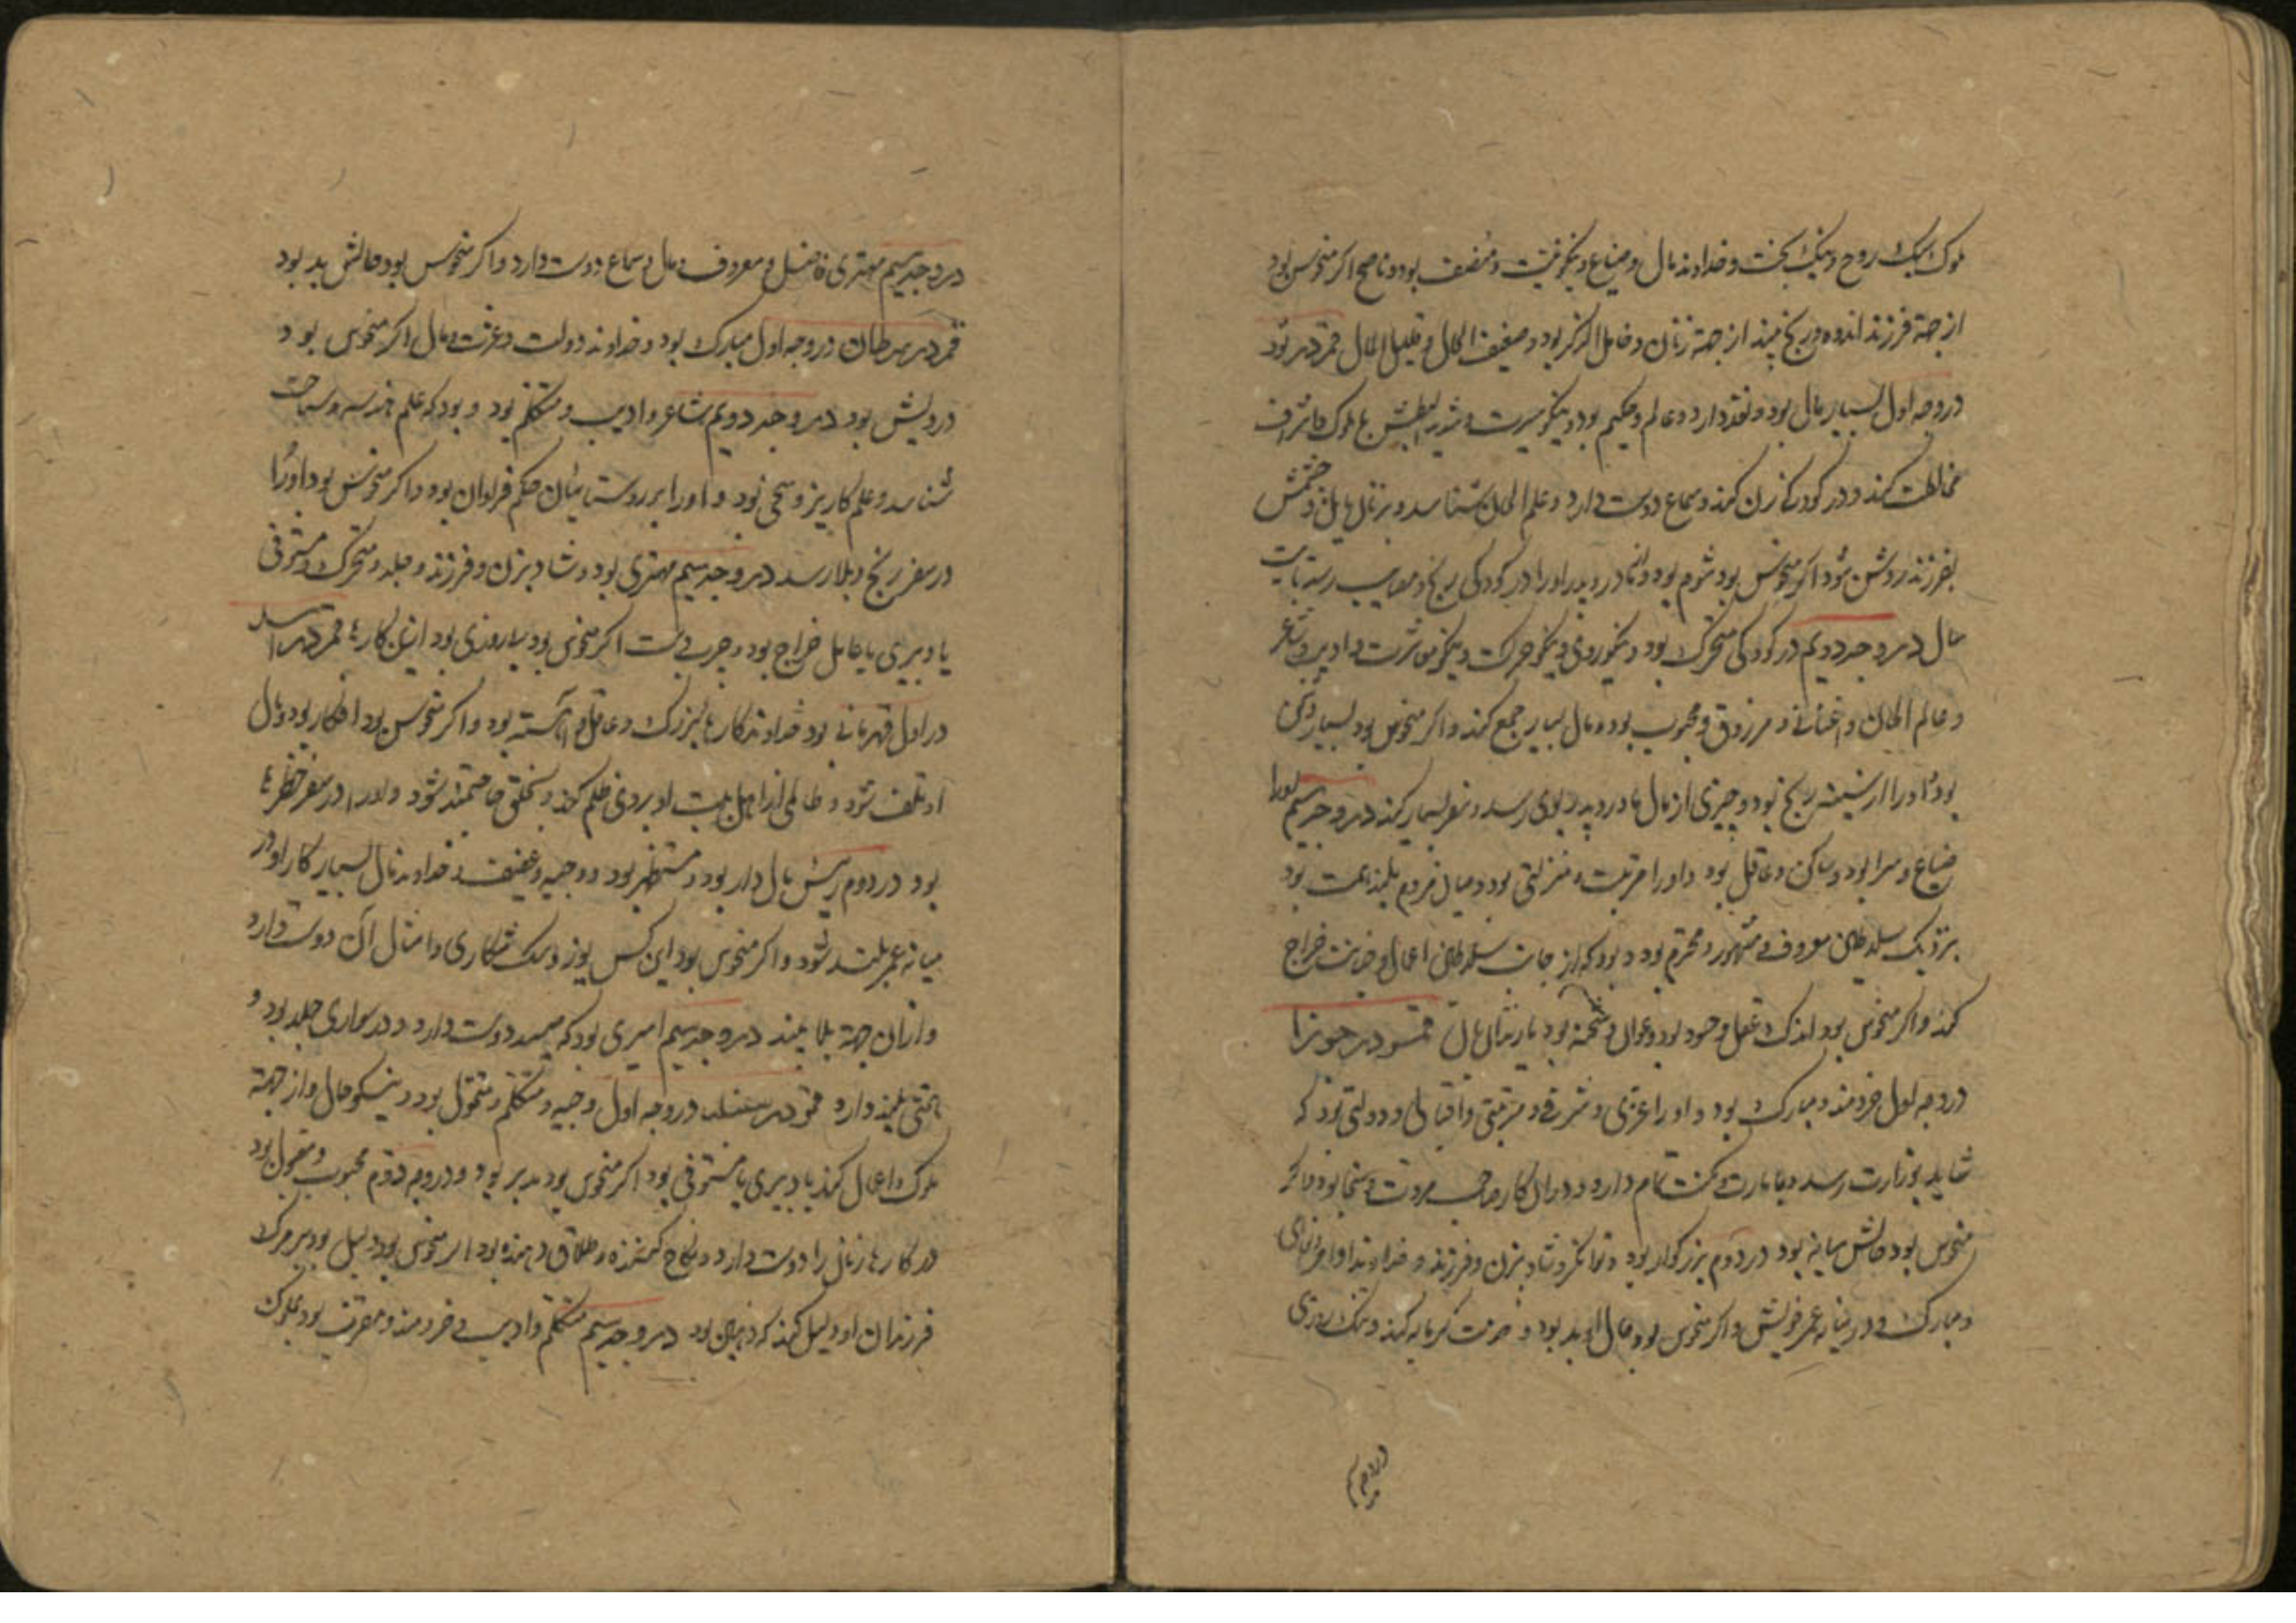 ملوک سبک روح و نیک بخت و خداوند مال و ضیاع و نیکو نیت و منصف بود و ناصح اکر منحوس بود
از جهة فرزند اندوه و رنج بیند از جهة زنان و خامل الذکر بود و ضعیف الحال و قلیل المال قمر در ثور
در وجه اول بسیار مال بود و نقد دارد و عالم و حکیم بود و نیکو سیرت و شدید البطش با ملوک و اشراف
مخالطت کند و در کودکی زن کند و سماع دوست دارد و علم الحان شناسد و بر زنان و چشمش
بفرزند روشن شود اکر منحوس بود شوم بود و مادر و پدر او را در کودکی رنج و مصایب رسد
مال در وجه دویم در کودکی متحرک بود و نیکو روی و نیکو حرکت و نیکو معاشرت و ادیب و شاعر
و عالم الحان و اغنانی و مرزوق و محبوب بود و مال بسیار جمع کند و اکر منحوس بود بسیار
بود او را از رنج بود و چیزی از مال مادر و پدر بوی رسد و سفر بسیار کند در وجه سیم او را
ضیاع و سرا بود و ساکن و عاقل بود و او را مرتبت و منزلتی بود و میان مردم بلند همت بود
بنزدیک سلطان معروف و مشهور و محترم بود و بود که از جانب سلطان اعمال و خراج
کند و اکر منحوس بود اندک عقل و حسود بود و عوان و شحنه بود قمر در جوزا
در وجه اول خردمند و مبارک بود و او را عزی و شرفی و مرتبتی و اقبالی و دولتی بود که
شاید بوزارت رسد و بامارت و مکنت تمام دارد و در آن کار صاحب مروت و سخا بود و اکر
منحوس بود حالش میانه بود در دوم بزرکوار بود و توانکر و شاد بزن و فرزند و خداوند
و مبارک و در میانه عمر خویش و اکر منحوس بود حال او بد بود و کرمابه کند و تنک روزی
در وجه سیم
در وجه سیم مهتری فاضل و معروف و مال و سماع دوست دارد و اکر منحوس بود حالش بد بود
قمر در سرطان در وجه اول مبارک بود و خداوند دولت و عزت و مال اکر منحوس بود
درویش بود در وجه دویم شاعر و ادیب و متکلم بود و بود که علم هندسه و مساحت
شناسد و علم کاریز و سخی بود و او را بر روستائیان حکم فراوان بود و اکر منحوس بود او را
در سفر رنج و بلا رسد در وجه سیم مهتری بود و شاد بزن و فرزند و جلد و متحرک و مستوفی
یا دبیری یا عامل خراج بود و چرب دست اکر منحوس بود بد روزی بود ازین کارها قمر در اسد
در اول قهرمانی بود خداوند کارهای بزرک و عاقل و آهسته بود و اکر منحوس بود افکار بود و مال
او تلف شود و ظالمی از اهل بیت او بر وی ظلم کند و بخلق حاجتمند شود و او را در سفر خطرها
بود در دوم رئیس مال دار بود و مستظهر بود و وجیه و عفیف و خداوند مال بسیار کار او در
میانه عمر بلند شود و اکر منحوس بود این کس یوز و سک شکاری و امثال آن دوست دارد
و از آن جهة بلا بیند در وجه سیم امیری بود که صید دوست دارد و در سواری جلد بود و
همتی بلند دارد قمر در سنبله در وجه اول وجیه و متکلم و متمول بود و نیکو حال و از جهة
ملوک اعمال کند یا دبیری یا مستوفی بود اکر منحوس بود مدبر بود و در وجه دوم محبوب و مقبول بود
در کارها زنان را دوست دارد و نکاح کننده و طلاق دهنده بود اکر منحوس بود دلیل بود بر مرک
فرزندان او در وجه سیم متکلم و ادیب و خردمند و مقرب بود بملوک